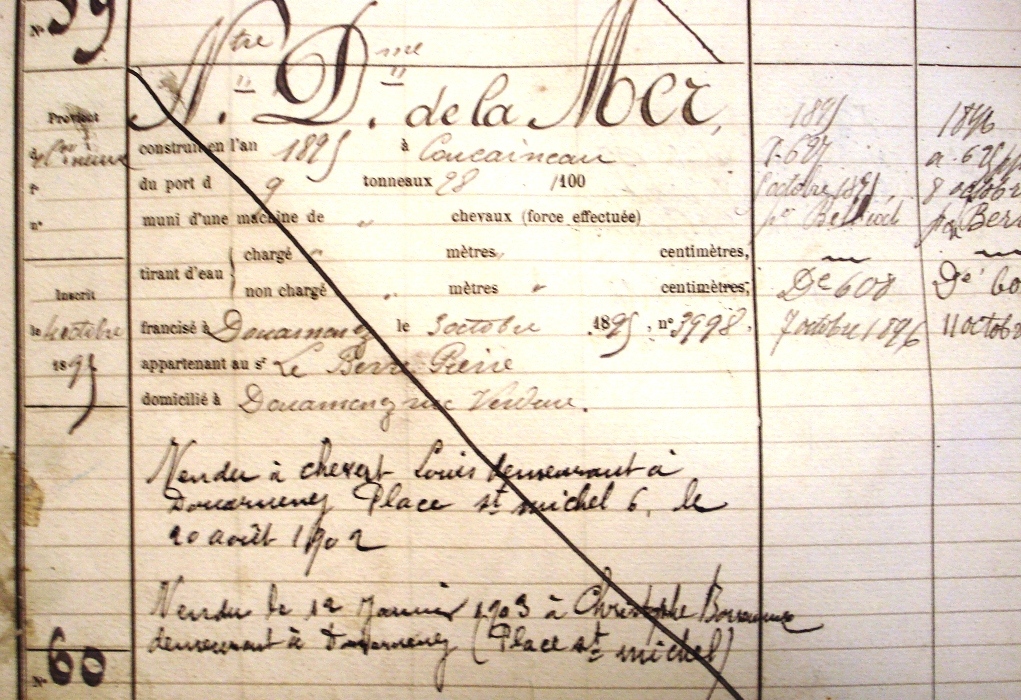 N° 59
Ntre Dme de la Mer,
Provient
d
f°
n°
Inscrit
le 4 octobre
1895
construit en l'an 1895 à Concarneau
du port d 9 tonneaux 98 /100
muni d'une machine de " chevaux (force effectuée)
tirant d'eau { chargé " mètres " centimètres,
non chargé " mètres " centimètres;
francisé à Douarnenez le 3 octobre 1895, n° 3998.
appartenant au sr Le Berre Pierre
domicilié à Douarnenez rue
Vendu à Louis demeurant à
Douarnenez Place st michel 6, le
20 août 1902
Vendu le 12 Janvier 1903 à Christophe
demeurant à Douarnenez (Place st michel)
N° 60
1895
octobre 1895
De 608
7 octobre 1896
1896
8 octobr
De 60
11 octob